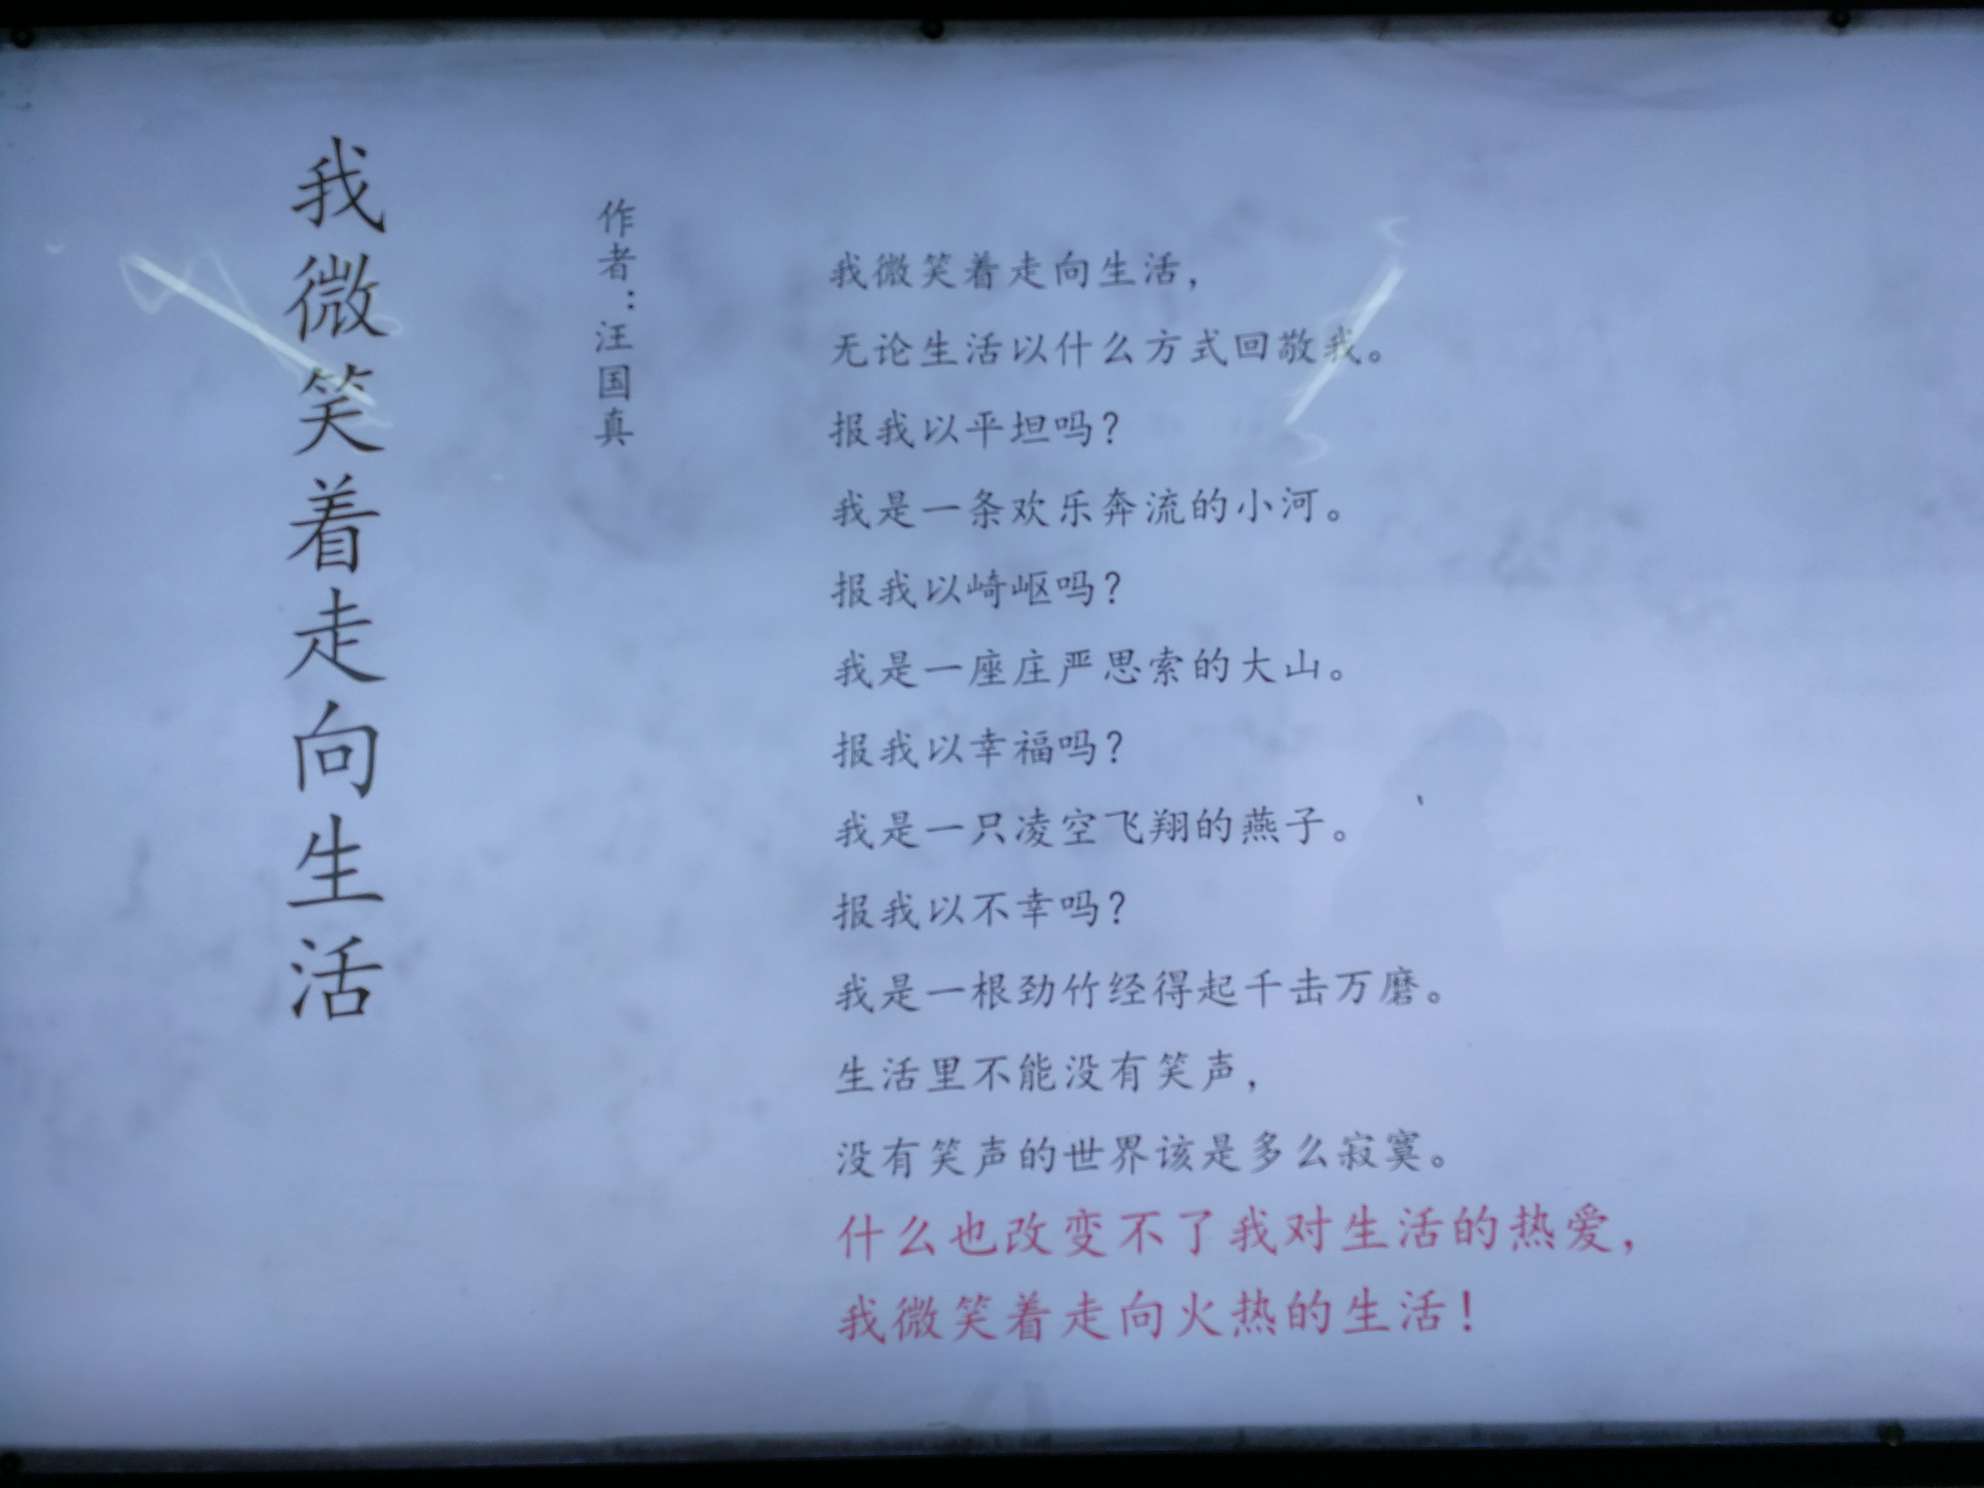 我微笑着走向生活
作者：汪国真
我微笑着走向生活，
无论生活以什么方式回敬我。
报我以平坦吗？
我是一条欢乐奔流的小河。
报我以崎岖吗？
我是一座庄严思索的大山。
报我以幸福吗？
我是一只凌空飞翔的燕子。
报我以不幸吗？
我是一根劲竹经得起千击万磨。
生活里不能没有笑声，
没有笑声的世界该是多么寂寞。
什么也改变不了我对生活的热爱，
我微笑着走向火热的生活！